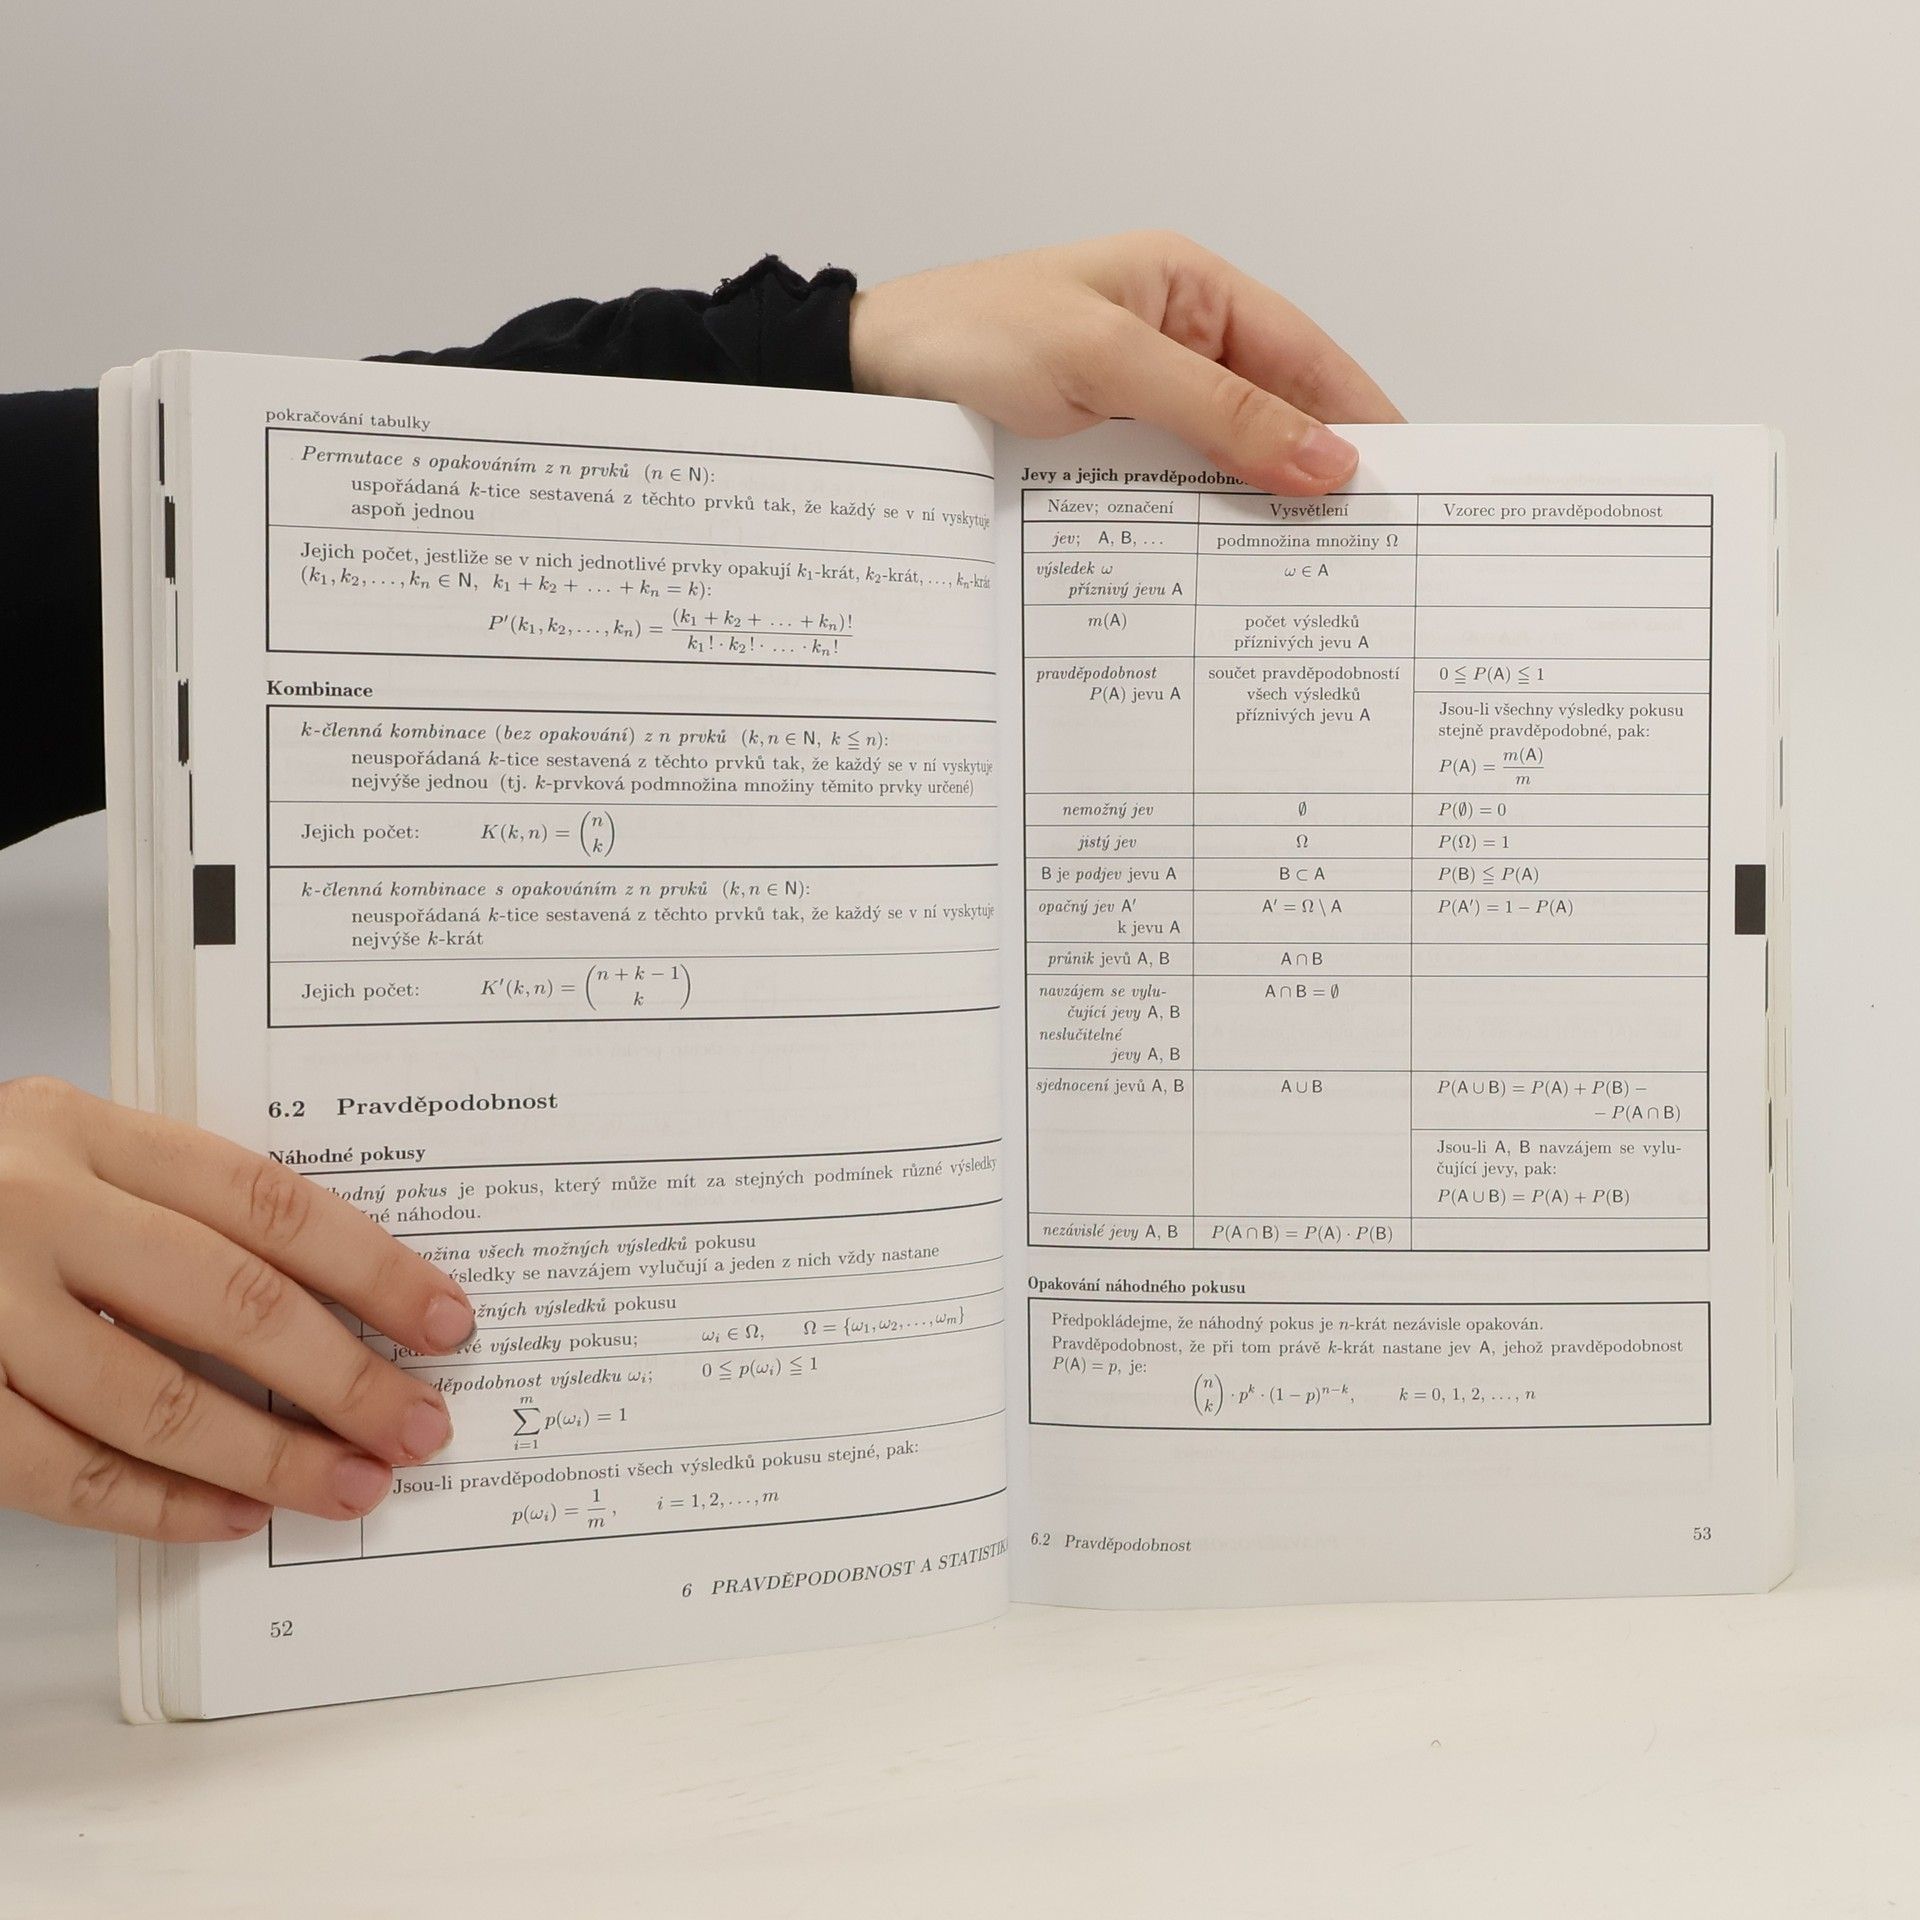 pokračování tabulky
Permutace s opakováním z n prvků (n ∈ N):
uspořádaná k-tice sestavená z těchto prvků tak, že každý se v ní vyskytuje
aspoň jednou
Jejich počet, jestliže se v nich jednotlivé prvky opakují k₁-krát, k₂-krát, ..., kₙ-krát
(k₁, k₂, ..., kₙ ∈ N, k₁ + k₂ + ... + kₙ = k):
P′(k₁, k₂, ..., kₙ) = (k₁ + k₂ + ... + kₙ)! / k₁! · k₂! · ... · kₙ!
Kombinace
k-členná kombinace (bez opakování) z n prvků (k, n ∈ N, k ≦ n):
neuspořádaná k-tice sestavená z těchto prvků tak, že každý se v ní vyskytuje
nejvýše jednou (tj. k-prvková podmnožina množiny těmito prvky určené)
Jejich počet: K(k, n) = (n k)
k-členná kombinace s opakováním z n prvků (k, n ∈ N):
neuspořádaná k-tice sestavená z těchto prvků tak, že každý se v ní vyskytuje
nejvýše k-krát
Jejich počet: K′(k, n) = (n + k − 1 k)
6.2 Pravděpodobnost
Náhodné pokusy
pokus je pokus, který může mít za stejných podmínek různé výsledky
náhodou.
všech možných výsledků pokusu
se navzájem vylučují a jeden z nich vždy nastane
výsledků pokusu
výsledky pokusu; ωᵢ ∈ Ω, Ω = {ω₁, ω₂, ..., ωₘ}
výsledku ωᵢ; 0 ≦ p(ωᵢ) ≦ 1
m
∑ p(ωᵢ) = 1
i=1
Jsou-li pravděpodobnosti všech výsledků pokusu stejné, pak:
p(ωᵢ) = 1/m, i = 1, 2, ..., m
6 PRAVDĚPODOBNOST A
52
Jevy a jejich
Název; označení Vysvětlení Vzorec pro pravděpodobnost
jev; A, B, ... podmnožina množiny Ω
výsledek ω ω ∈ A
příznivý jevu A
m(A) počet výsledků
příznivých jevu A
pravděpodobnost součet pravděpodobností 0 ≦ P(A) ≦ 1
P(A) jevu A všech výsledků
příznivých jevu A
Jsou-li všechny výsledky pokusu
stejně pravděpodobné, pak:
P(A) = m(A)/m
nemožný jev ∅ P(∅) = 0
jistý jev Ω P(Ω) = 1
B je podjev jevu A B ⊂ A P(B) ≦ P(A)
opačný jev A′ A′ = Ω \ A P(A′) = 1 − P(A)
k jevu A
průnik jevů A, B A ∩ B
navzájem se vylu- A ∩ B = ∅
čující jevy A, B
neslučitelné
jevy A, B
sjednocení jevů A, B A ∪ B P(A ∪ B) = P(A) + P(B) −
− P(A ∩ B)
Jsou-li A, B navzájem se vylu-
čující jevy, pak:
P(A ∪ B) = P(A) + P(B)
nezávislé jevy A, B P(A ∩ B) = P(A) · P(B)
Opakování náhodného pokusu
Předpokládejme, že náhodný pokus je n-krát nezávisle opakován.
Pravděpodobnost, že při tom právě k-krát nastane jev A, jehož pravděpodobnost
P(A) = p, je:
(n k) · pᵏ · (1 − p)ⁿ⁻ᵏ, k = 0, 1, 2, ..., n
6.2 Pravděpodobnost
53